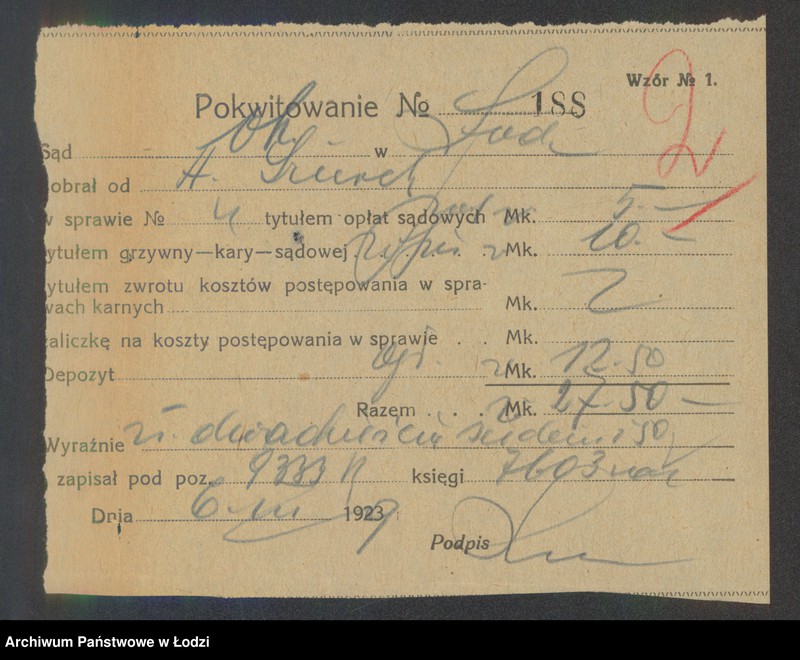 Wzór № 1.
2
Pokwitowanie № 188
Sąd Okr w Łodzi
pobrał od A.
w sprawie № tytułem opłat sądowych Mk. 5.—
tytułem grzywny—kary—sądowej Mk. 10.—
tytułem zwrotu kosztów postępowania w spra-
wach karnych Mk.
zaliczkę na koszty postępowania w sprawie . . Mk.
Depozyt ogł. zł Mk. 12.50
Razem . . . zł Mk. 27.50 —
Wyraźnie zł. dwadzieścia siedem i 50
zapisał pod poz. 9333 księgi 7603
Dnia 6 III 1923 9
Podpis
Archiwum Państwowe w Łodzi